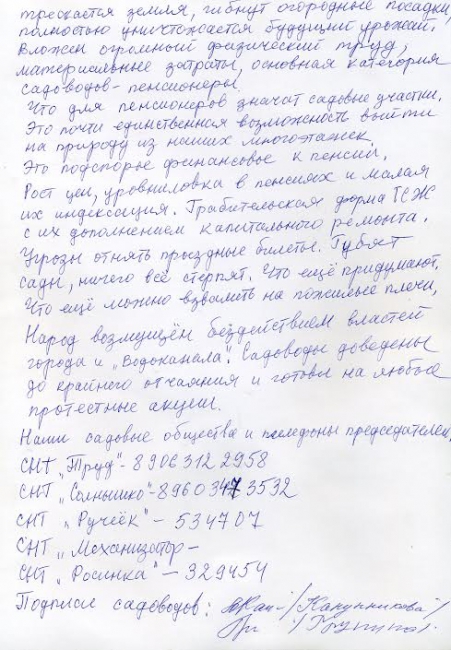 трескается земля, гибнут огородные посадки,
полностью уничтожается будущий урожай.
Вложен огромный физический труд,
материальные затраты, основная категория
садоводов - пенсионеры.
Что для пенсионеров значат садовые участки.
Это почти единственная возможность выйти
на природу из наших многоэтажек.
Это подспорье финансовое к пенсии.
Рост цен, уровниловка в пенсиях и малая
их индексация. Грабительская форма ТСЖ
с их дополнением капитального ремонта.
Угрозы отнять проездные билеты. Губят
сады, ничего всё стерпят. Что ещё придумают.
Что ещё можно взвалить на пожилые плечи,
Народ возмущён бездействием властей
города и „Водоканала". Садоводы доведены
до крайнего отчаяния и готовы на любые
протестные акции.
Наши садовые общества и телефоны председателей.
СНТ „Труд" - 8906312 2958
СНТ „Солнышко" - 8960347 3532
СНТ „Ручеёк" - 534707
СНТ „Механизатор -
СНТ „Росинка" - 329454
Подписи садоводов: